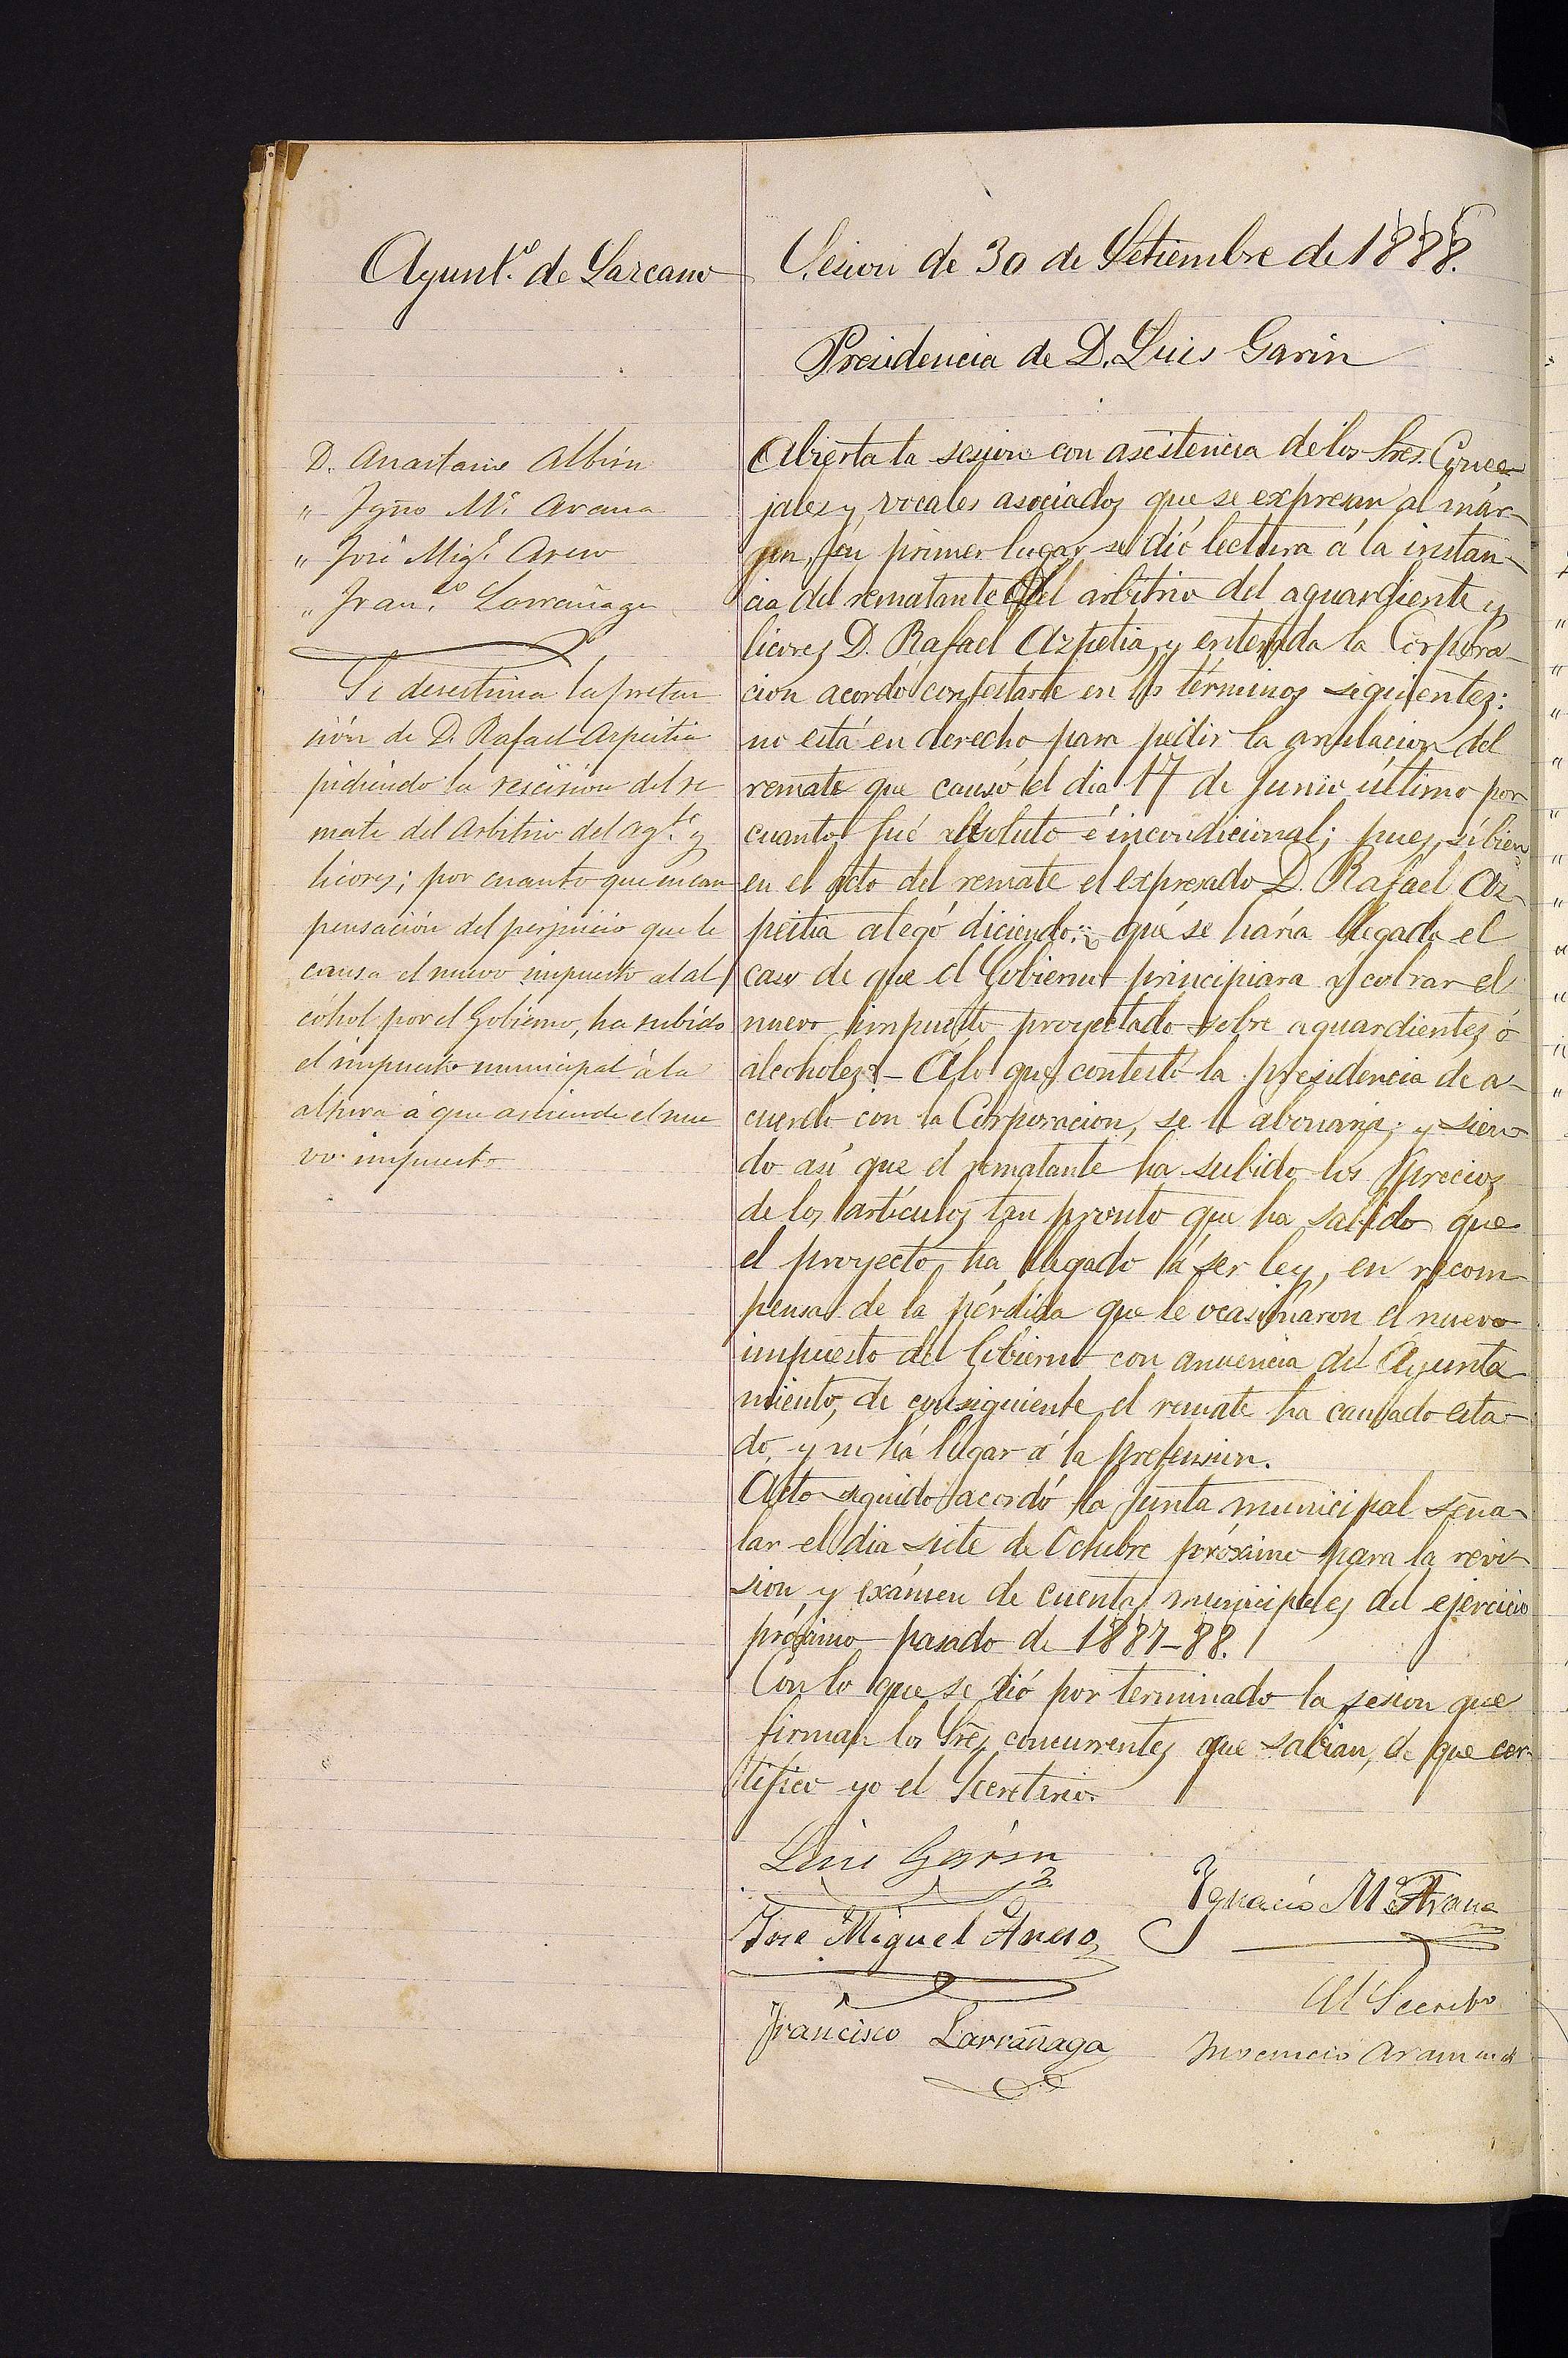 Ayunt.º de Lazcano
Sesion de 30 de Setiembre de 1888.
Presidencia de D. Luis Garin
D. Anastasio Albisu
" Ygno M.ª Arana
" José Mig.l Areso
" Fran.co Larrañaga
Se desestima la preten
sión de D. Rafael Azpeitia
pidiendo la rescision del re
mate del Arbitrio del ag.te y
licores; por cuanto que en com
pensación del perjuicio que le
causa el nuevo impuesto al al
cóhol por el Gobierno, ha subido
el impuesto municipal á la
altura á que asciende el nue
vo impuesto
Abierta la sesion con asistencia de los Sres. Conce-
jales y vocales asociados que se expresan al már-
jen, en primer lugar se dió lectura á la instan-
cia del rematante del arbitrio del aguardiente y
licores D. Rafael Azpetia, y enterada la Corpora-
cion acordó contestarle en los términos siguientes:
no está en derecho para pedir la anulacion del
remate que causó el dia 17 de Junio último por
cuanto fué absoluto é incondicional; pues, si bien
en el acto del remate el expresado D. Rafael Az-
peitia alegó diciendo: ¿qué se haría llegado el
caso de que el Gobierno principiara á cobrar el
nuevo impuesto proyectado sobre aguardientes ó
alcoholes? – A lo que contestó la presidencia de a-
cuerdo con la Corporacion, se le abonaria; y sien-
do así que el rematante ha subido los precios
de los artículos tan pronto que ha sabido que
el proyecto ha llegado á ser ley, en recom-
pensa de la pérdida que le ocasionaron el nuevo
impuesto del Gobierno con anuencia del Ayunta-
miento, de consiguiente el remate ha causado esta-
do, y no há lugar á la pretension.
Acto seguido acordó la Junta municipal seña-
lar el dia siete de Octubre próximo para la revi-
sion y exámen de cuentas municipales del ejercicio
próximo pasado de 1887-88.
Con lo que se dió por terminado la sesion que
firman los Sres concurrentes que sabian, de que cer-
tifico yo el Secretario.
Luis Garin
Ignacio M.ª Arana
Jose Miguel Areso
Francisco Larrañaga
El Secret.rio
Inocencio Aramendi